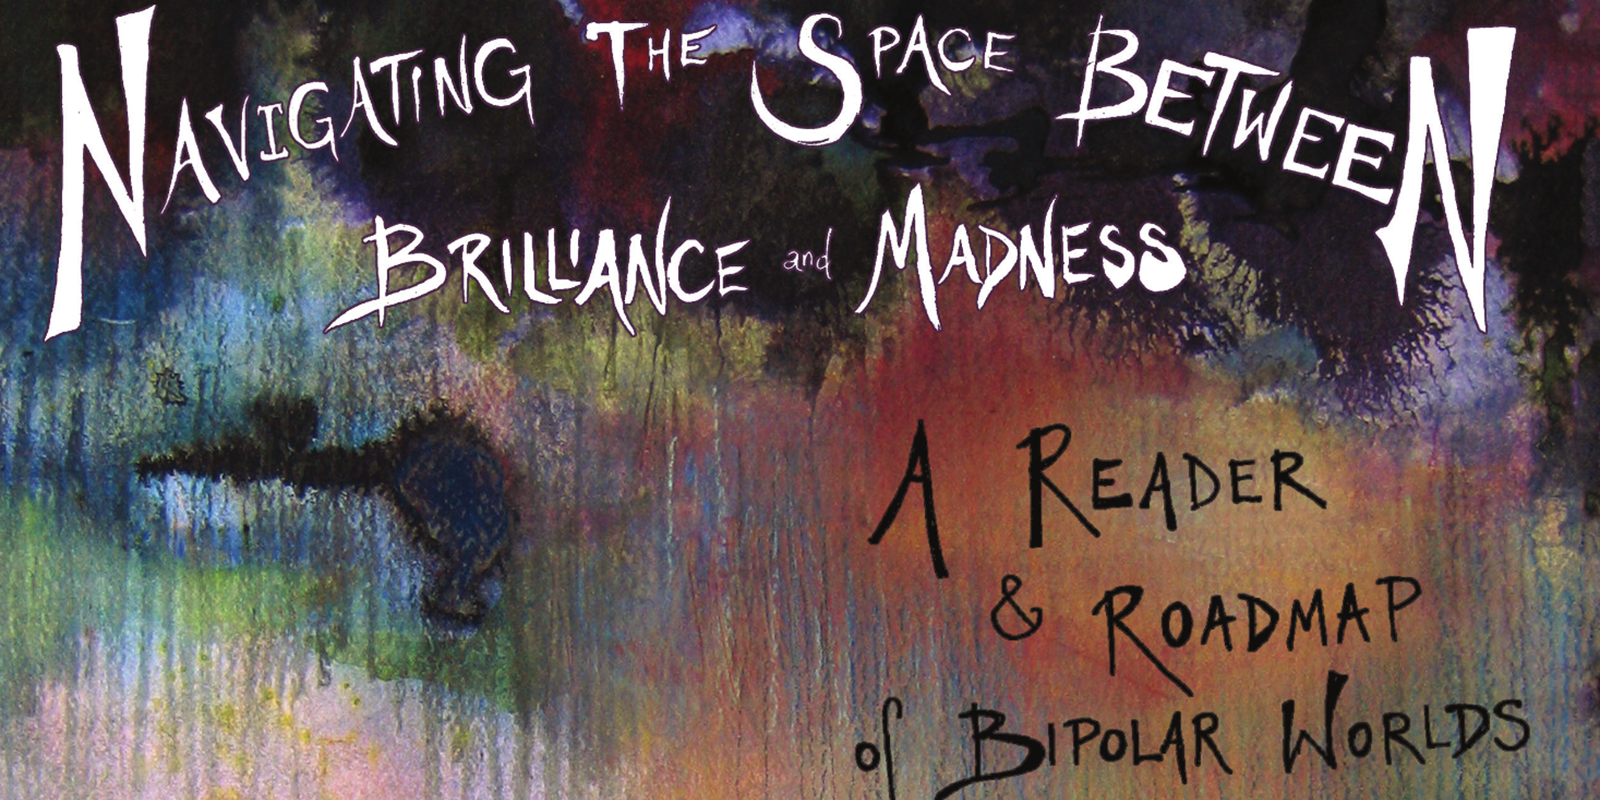 NAVIGATING THE SPACE BETWEEN
BRILLIANCE and MADNESS
A READER
& ROADMAP
of BIPOLAR WORLDS